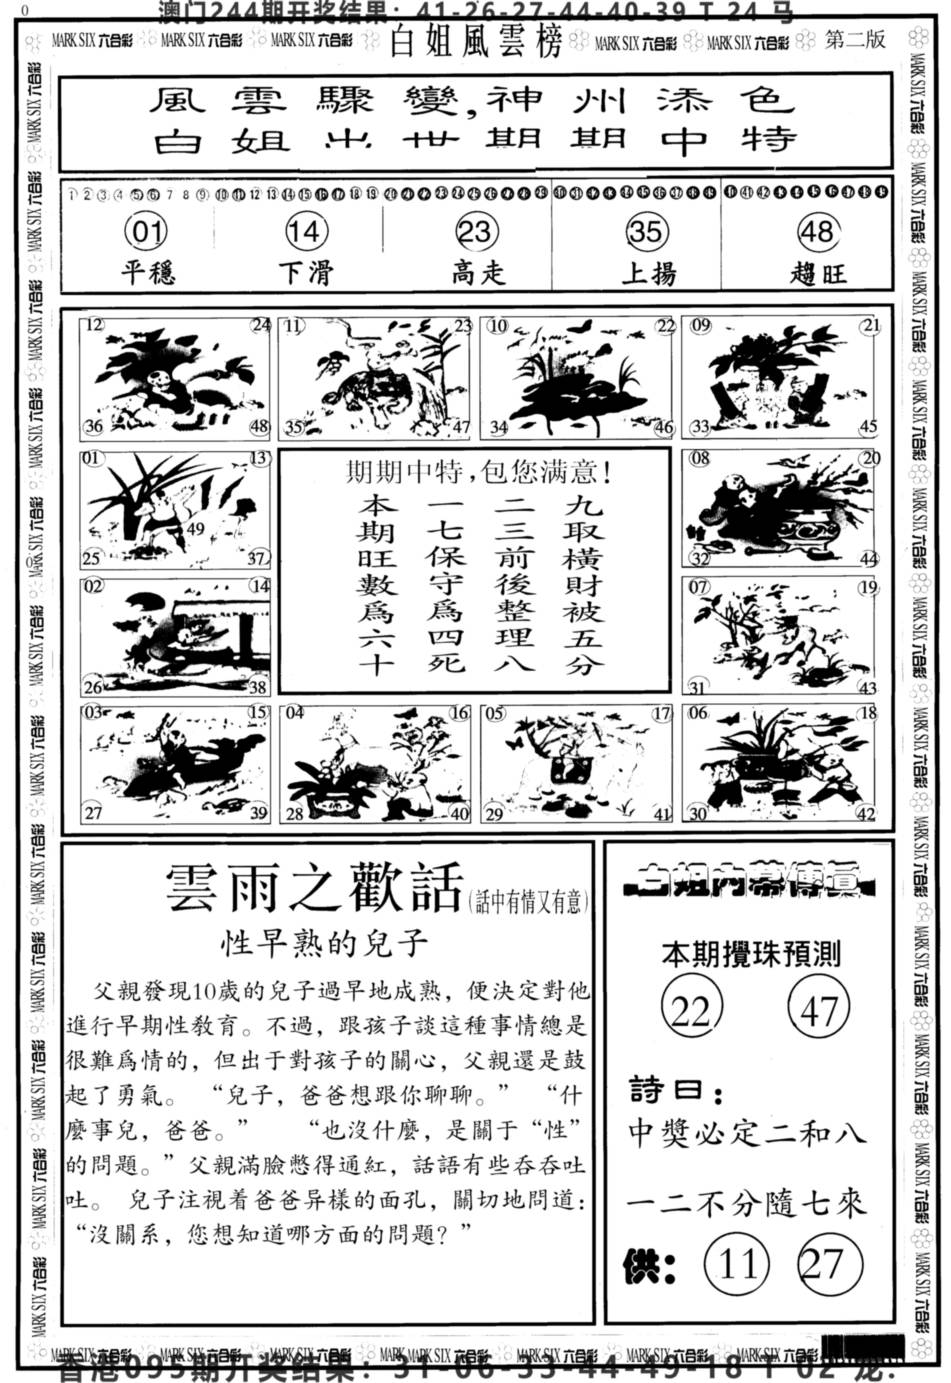 0
澳门244期开奖结果：41-26-27-44-40-39 T 24 马
MARK SIX 六合彩 MARK SIX 六合彩 MARK SIX 六合彩 白姐風雲榜 MARK SIX 六合彩 MARK SIX 六合彩 第二版
風雲驟變,神州添色
白姐出世期期中特
01 14 23 35 48
平穩 下滑 高走 上揚 趨旺
12 24 11 23 10 22 09 21
36 48 35 47 34 46 33 45
期期中特,包您满意!
九取橫財被五分
二三前後整理八
一七保守為四死
本期旺數為六十
01 13 08 20
49
25 37 32 44
02 14 07 19
26 38 31 43
03 15 04 16 05 17 06 18
27 39 28 40 29 41 30 42
雲雨之歡話(話中有情又有意)
性早熟的兒子
父親發現10歲的兒子過早地成熟，便決定對他
進行早期性教育。不過，跟孩子談這種事情總是
很難爲情的，但出于對孩子的關心，父親還是鼓
起了勇氣。 “兒子，爸爸想跟你聊聊。” “什
麼事兒，爸爸。” “也沒什麼，是關于“性”
的問題。”父親滿臉憋得通紅，話語有些吞吞吐
吐。 兒子注視着爸爸异樣的面孔，關切地問道：
“沒關系，您想知道哪方面的問題？”
白姐内幕傳真
本期攪珠預測
22 47
詩曰：
中獎必定二和八
一二不分隨七來
供： 11 27
香港095期开奖结果：31-06-33-44-49-18 T 02 龙.